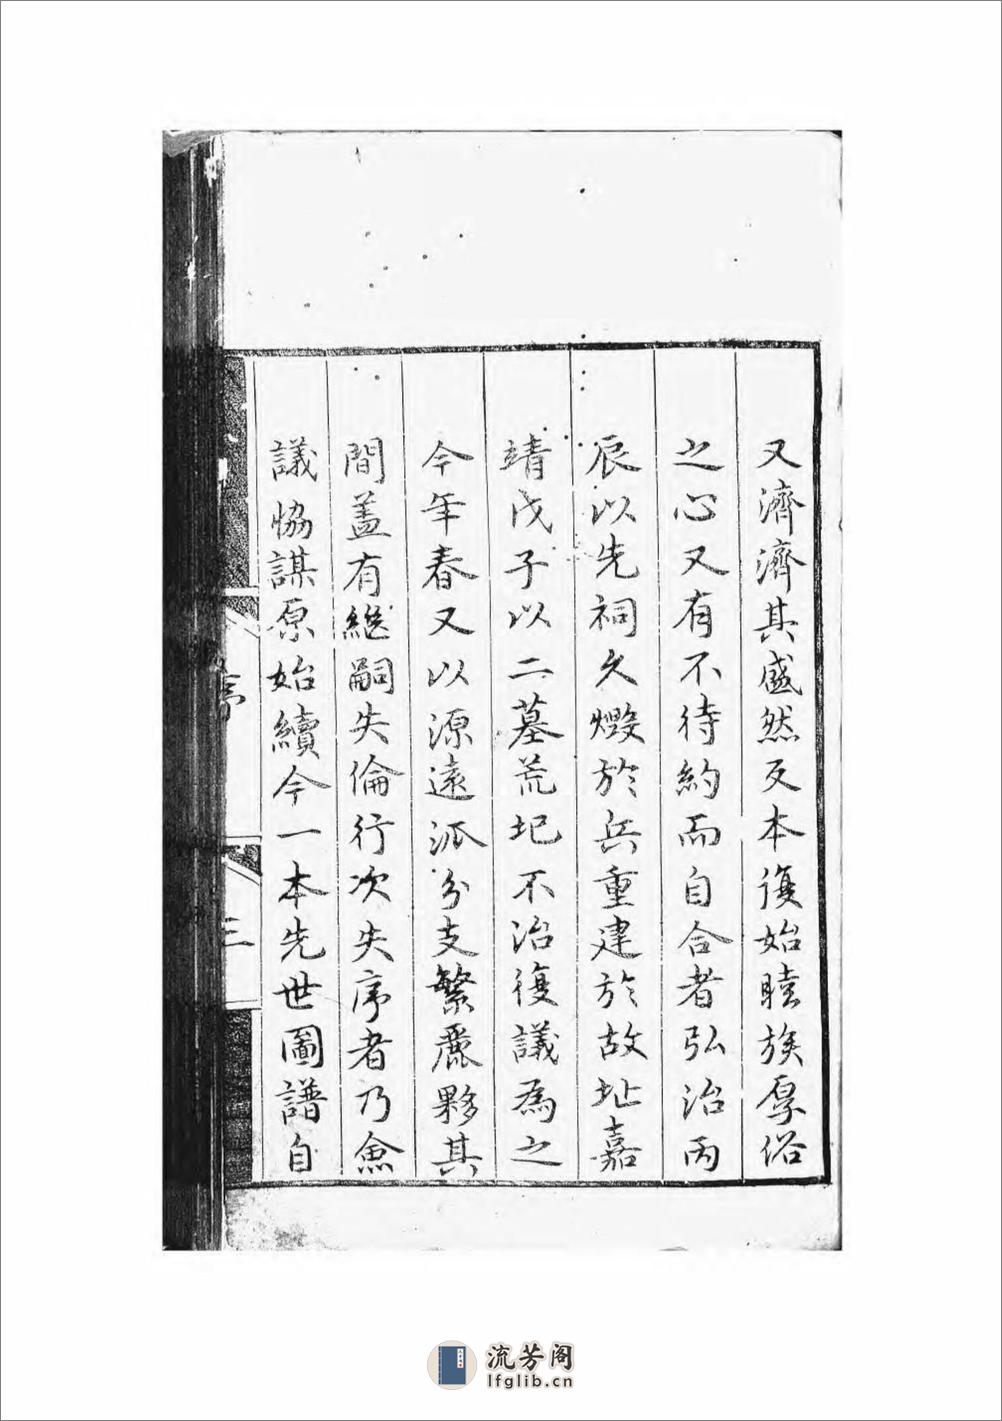 又濟濟其盛然反本復始睦族厚俗
之心又有不待約而自合者弘治丙
辰以先祠久燬於兵重建於故址嘉
靖戊子以二墓荒圮不治復議為之
今年春又以源遠派分支繁麗夥其
間蓋有繼嗣失倫行次失序者乃僉
議恊謀原始續今一本先世圖譜自
三
流芳阁
lfglib.cn